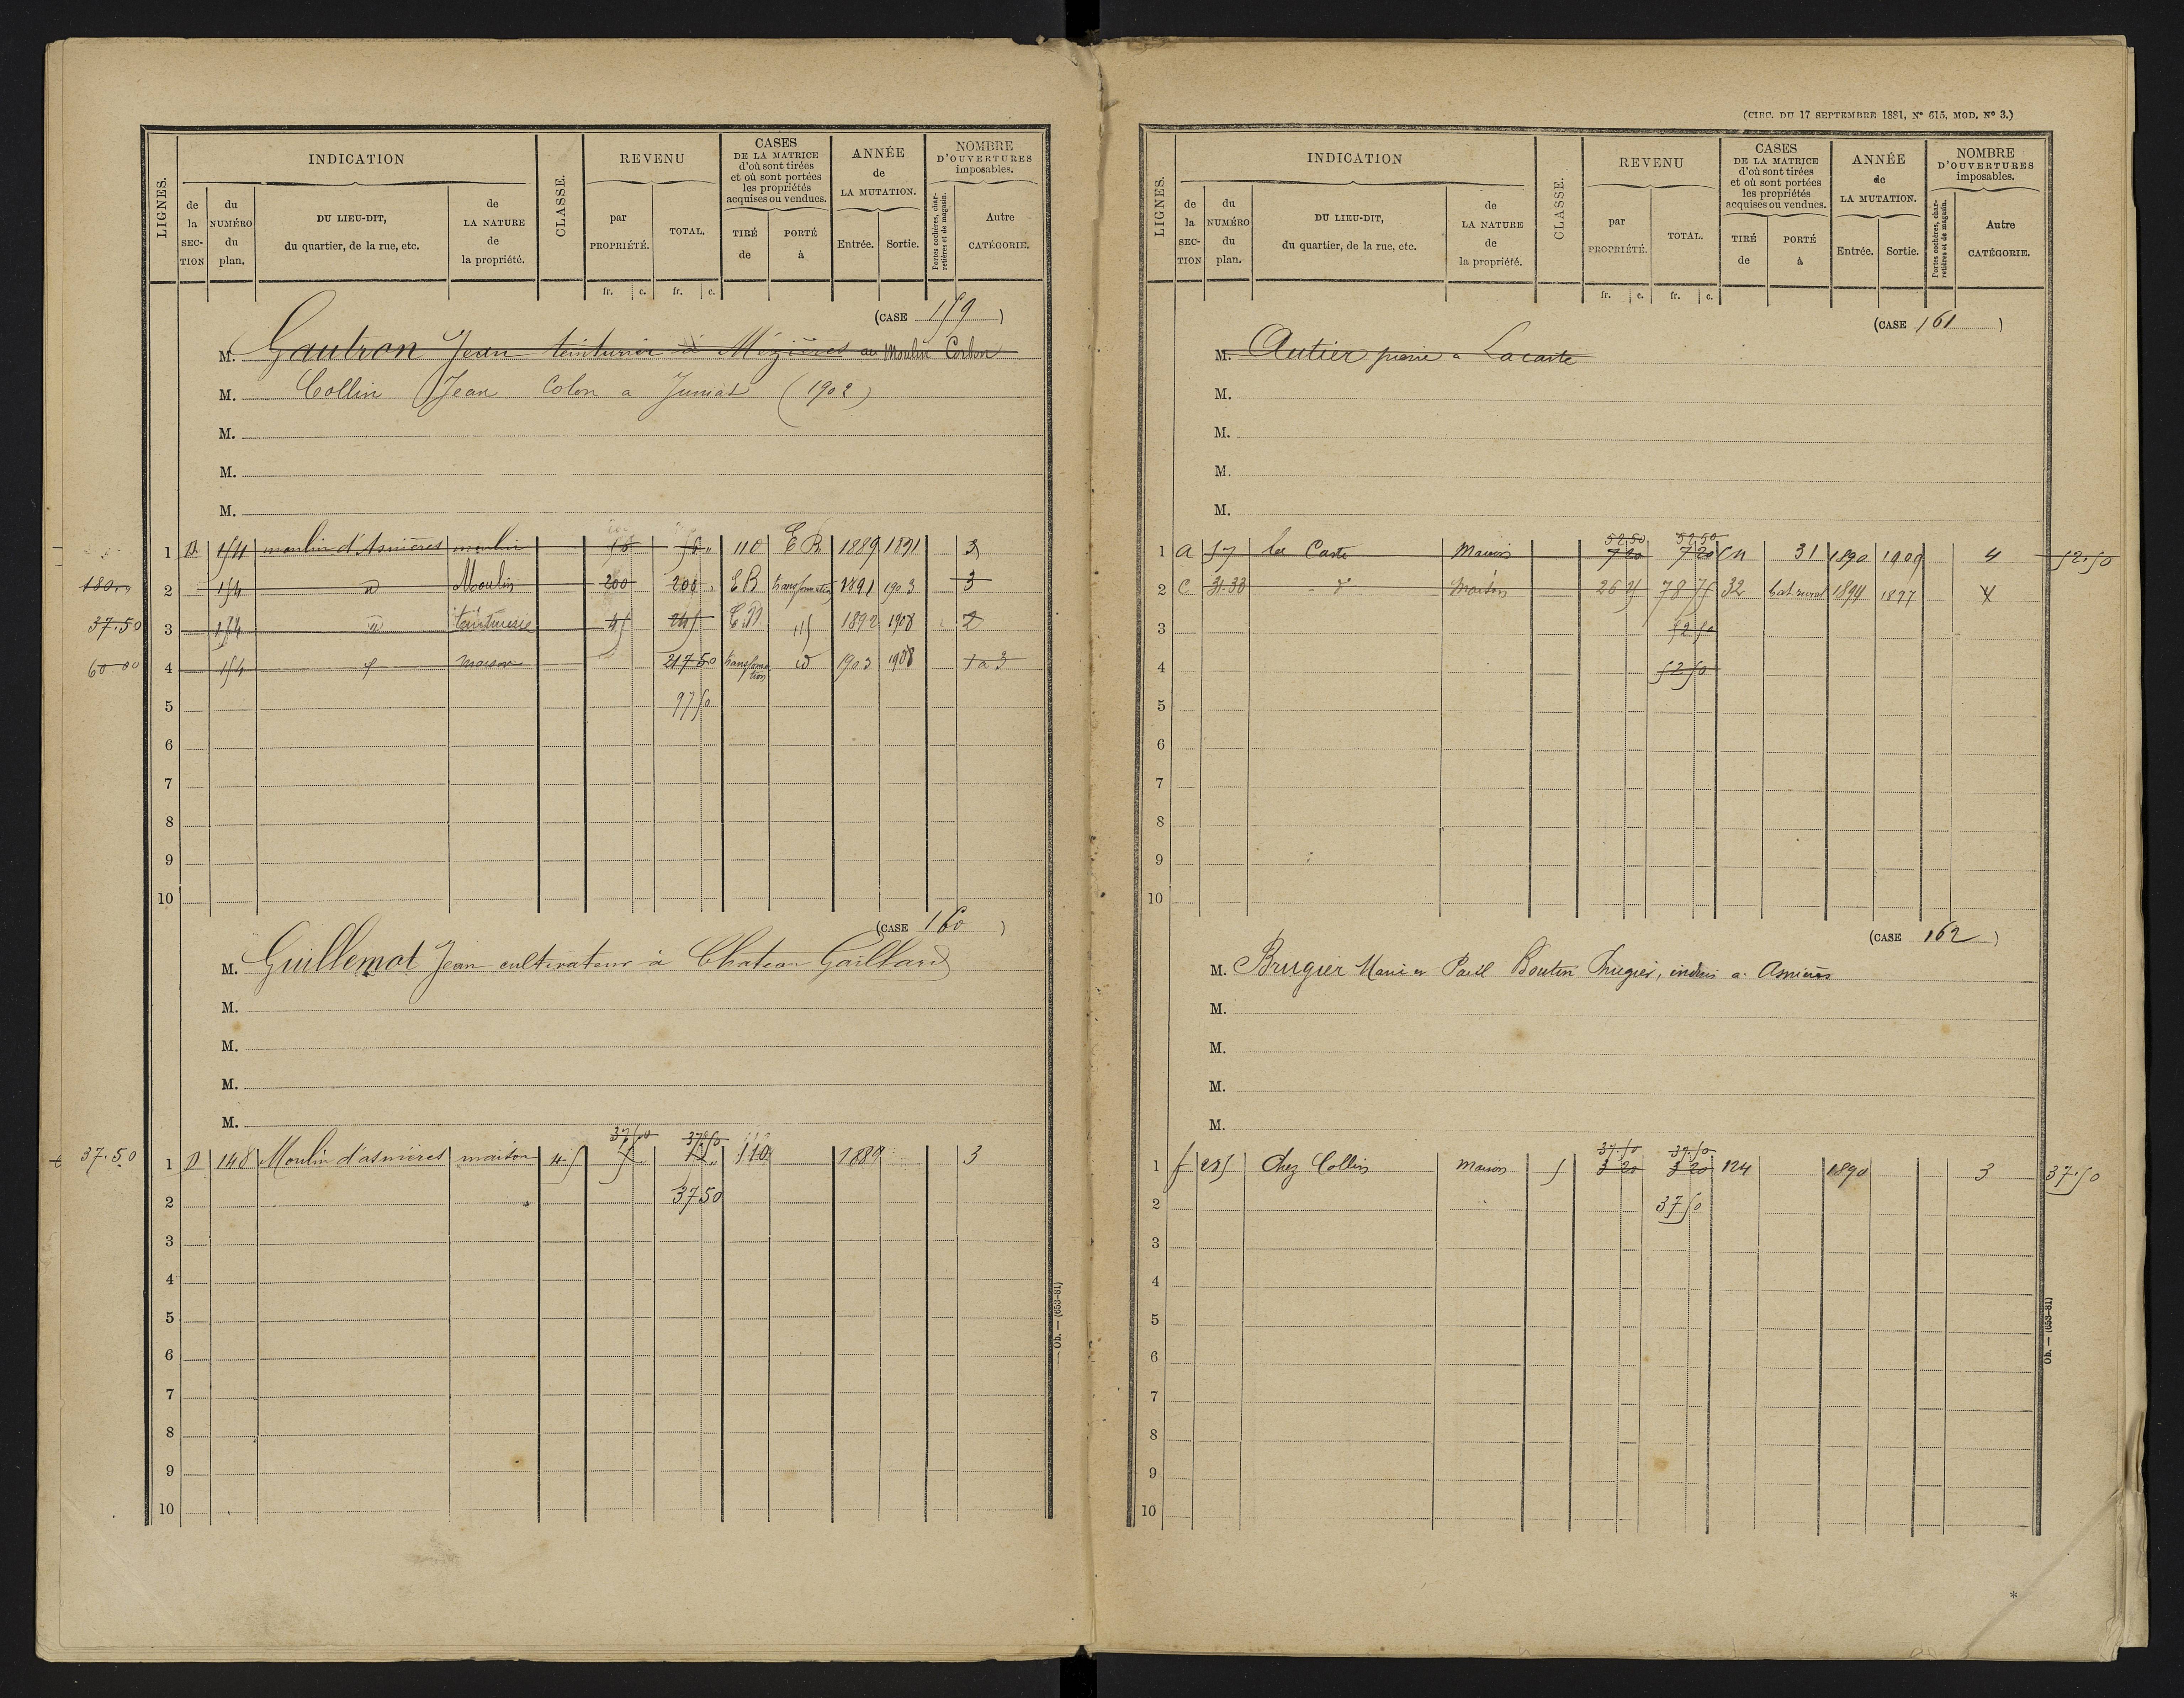 LIGNES.
INDICATION
de la SECTION
du NUMÉRO du plan.
DU LIEU-DIT, du quartier, de la rue, etc.
de LA NATURE de la propriété.
CLASSE.
REVENU
par PROPRIÉTÉ.
TOTAL.
CASES DE LA MATRICE d'où sont tirées et où sont portées les propriétés acquises ou vendues.
TIRÉ de
PORTÉ à
ANNÉE de LA MUTATION.
Entrée.
Sortie.
NOMBRE D'OUVERTURES imposables.
Portes cochères, charretières et de magasin.
Autre CATÉGORIE.
fr. c. fr. c.
(CASE 159)
M. Gautron Jean teinturier à Mézières au Moulin Corbon
M. Collin Jean Colon a Juniat (1902)
M.
M.
M.
1 D 154 moulin d'Asnières moulin 110 E B 1889 1891 3
180 2 154 d Moulin 200 200 E B transformation 1891 1903 3
37.50 3 154 teinturerie 45 245 115 1892 1908 2
60.00 4 154 maison 217 50 transformation 1903 1908 1 a 3
5 97 50
6
7
8
9
10
(CASE 160)
M. Guillemot Jean cultivateur à Chateau Gaillard
M.
M.
M.
M.
37 50 37 50
37.50 1 D 148 Moulin d'asnières maison 4-5 110 1889 3
2 37 50
3
4
5
6
7
8
9
10
Ob. — (653-81)
(CIRC. DU 17 SEPTEMBRE 1881, Nº 615, MOD. Nº 3.)
LIGNES.
INDICATION
de la SECTION
du NUMÉRO du plan.
DU LIEU-DIT, du quartier, de la rue, etc.
de LA NATURE de la propriété.
CLASSE.
REVENU
par PROPRIÉTÉ.
TOTAL.
CASES DE LA MATRICE d'où sont tirées et où sont portées les propriétés acquises ou vendues.
TIRÉ de
PORTÉ à
ANNÉE de LA MUTATION.
Entrée.
Sortie.
NOMBRE D'OUVERTURES imposables.
Portes cochères, charretières et de magasin.
Autre CATÉGORIE.
fr. c. fr. c.
(CASE 161)
M. Autier pierre a Lacarte
M.
M.
M.
M.
52 50 52 50
1 A 57 La Carte Maison 7 20 7 20 31 1890 1909 4 52.50
2 C 31-33 d° Maison 26 25 78 75 32 bat rural 1894 1897 4
3 52 50
4 52 50
5
6
7
8
9
10
(CASE 162)
M. Brugier Marie et Paul Boutin Brugier, indivis a Asnieres
M.
M.
M.
M.
37.50 37.50
1 f 285 Chez Collin Maison 5 3 20 3 20 124 1890 3 37.50
2 37 50
3
4
5
6
7
8
9
10
Ob. — (653-81)
*